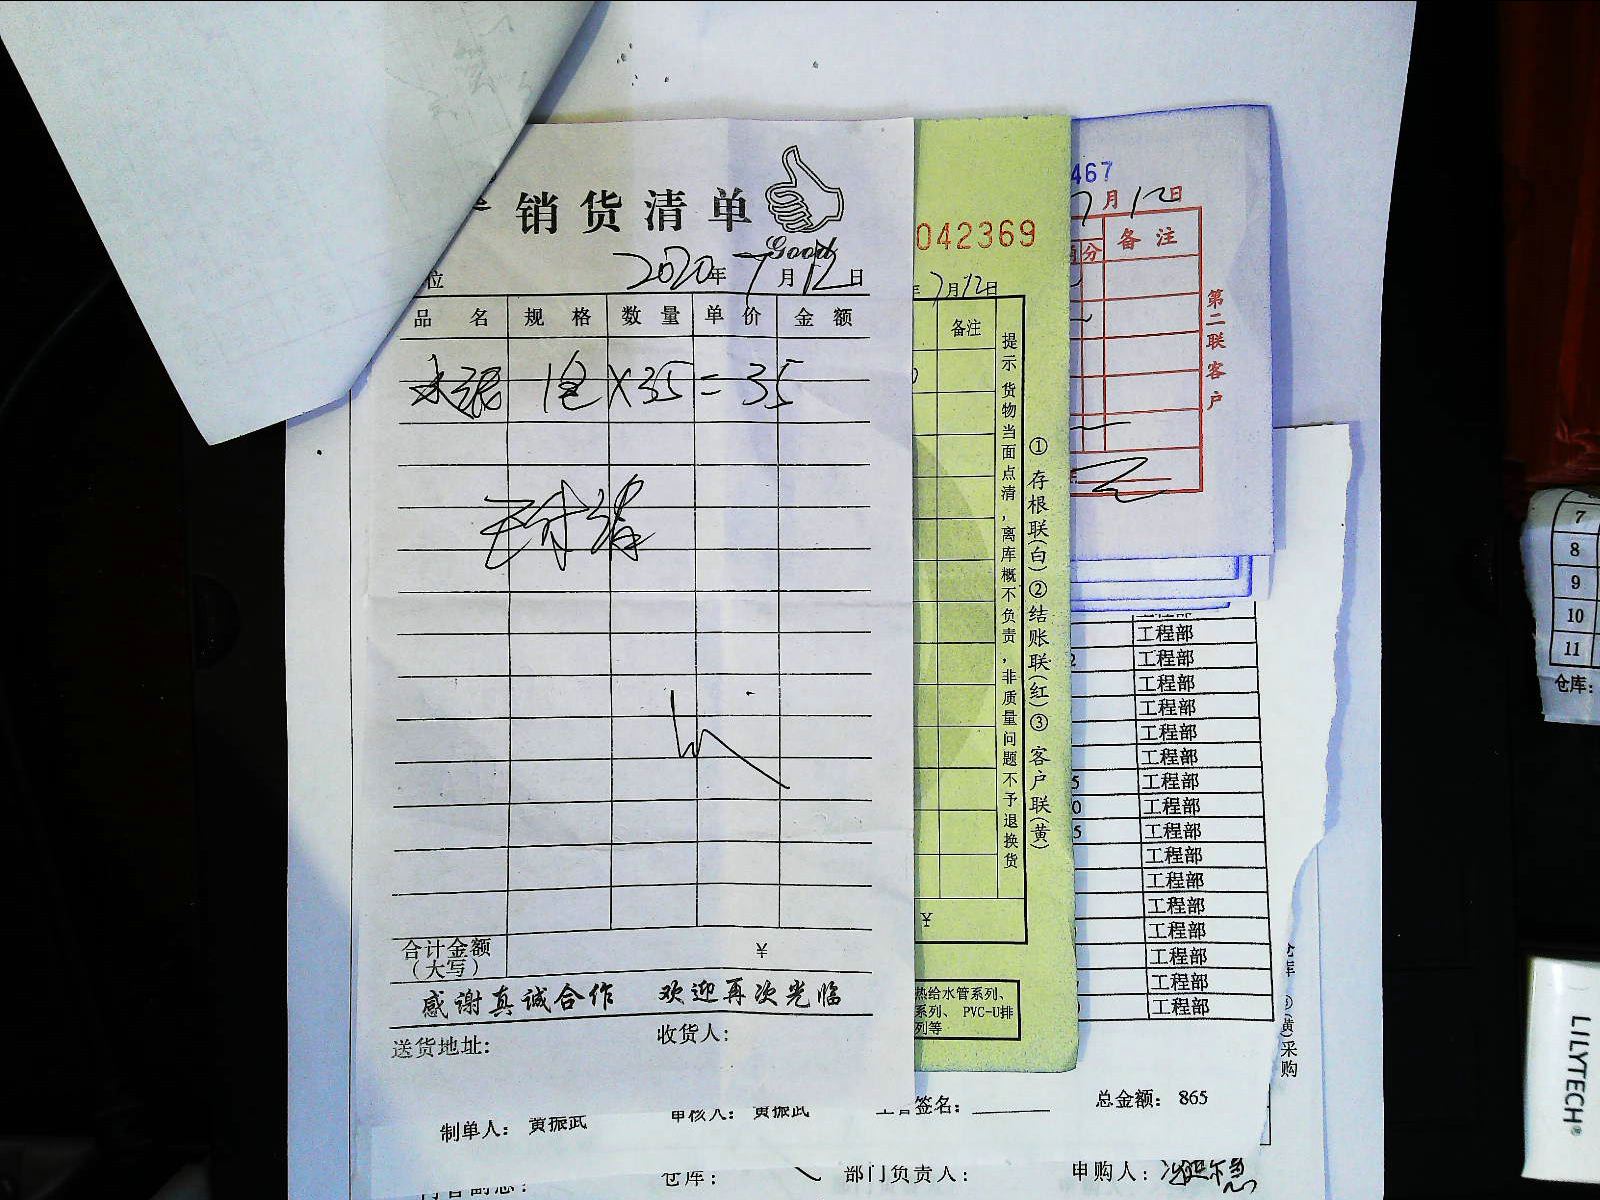 销货清单
Good
位 2020年7月12日
品名 规格 数量 单价 金额
1包×35=35
合计金额
(大写)
¥
感谢真诚合作 欢迎再次光临
送货地址:
收货人:
042369
年7月12日
备注
提示 货物当面点清，离库概不负责，非质量问题不予退换货
①存根联(白)②结账联(红)③客户联(黄)
¥
热给水管系列、
系列、PVC-U排
列等
467
7月12日
分
备注
第二联客户
工程部
工程部
工程部
工程部
工程部
工程部
工程部
工程部
工程部
工程部
工程部
工程部
工程部
工程部
工程部
工程部
采购
制单人: 黄振武
审核人: 黄振武
签名:
总金额: 865
仓库:
部门负责人:
申购人:
7
8
9
10
11
仓库:
LILYTECH®